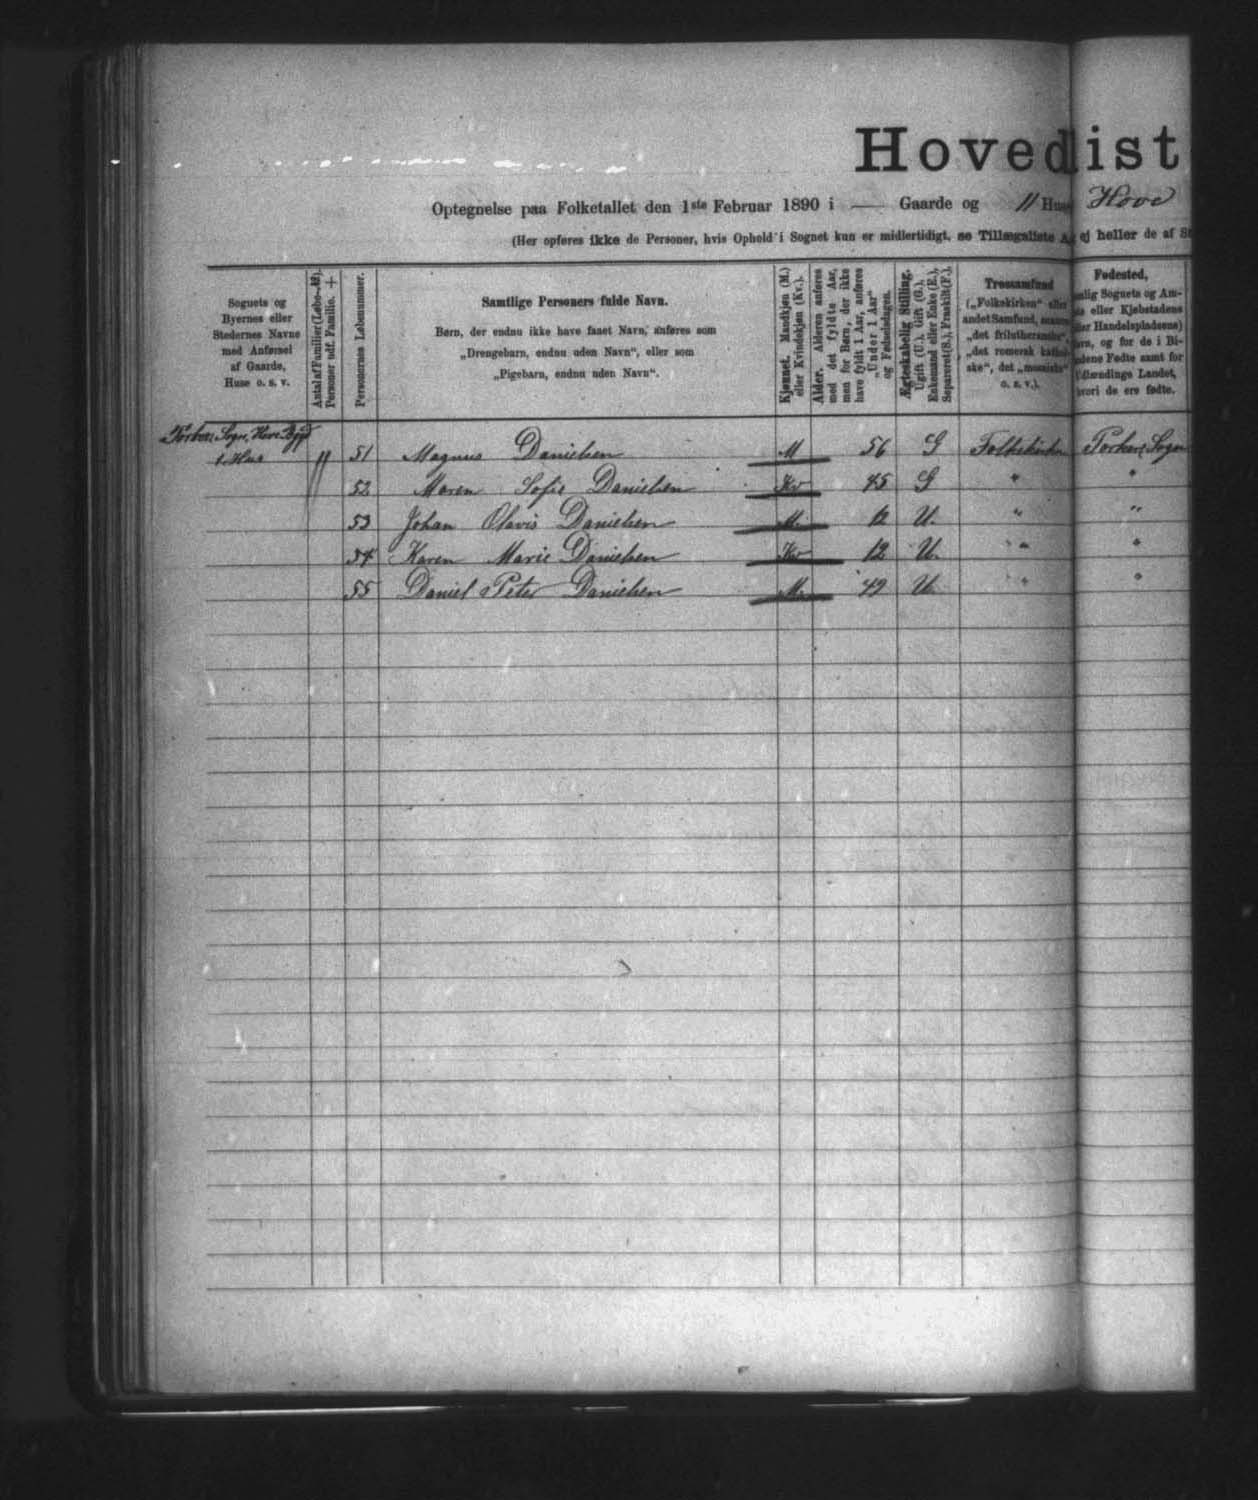 Hoved ist
Optegnelse paa Folketallet den 1ste Februar 1890 i — Gaarde og 11 Huse Hove
(Her opføres ikke de Personer, hvis Ophold i Sognet kun er midlertidigt, se Tillægsliste A, ej heller de af
Sognets og
Byernes eller
Stedernes Navne
med Anførsel
af Gaarde,
Huse o. s. v.
Antal af Familier (Løbe-№).
Personer udf. Familie. +
Personernes Løbenummer.
Samtlige Personers fulde Navn.
Børn, der endnu ikke have faaet Navn, anføres som
„Drengebarn, endnu uden Navn“, eller som
„Pigebarn, endnu uden Navn“.
Kjønnet. Mandkjøn (M.)
eller Kvindekjøn (Kv.).
Alder. Alderen anføres
med det fyldte Aar,
men for Børn, der ikke
have fyldt 1 Aar, anføres
„Under 1 Aar“
og Fødselsdagen.
Ægteskabelig Stilling.
Ugift (U.), Gift (G.),
Enkemand eller Enke (E.),
Separeret (S.), Fraskilt (F.).
Trossamfund
(„Folkekirken“ eller
andet Samfund, saasom
„det frilutheranske“,
„det romersk kathol-
ske“, det „mosaiske“
o. s. v.).
Fødested,
nlig Sognets og Am-
ts eller Kjøbstadens
ller Handelspladsens)
avn, og for de i Bi-
ndene Fødte samt for
Udlændinge Landet,
hvori de ere fødte.
Sogn, Hove Bygd
1. Hus
51 Magnus Danielsen M 56 G Folkekirken Sogn
52 Maren Sofie Danielsen Kv 45 G " "
53 Johan Olavis Danielsen M. 12 U. " "
54 Karen Marie Danielsen Kv 12 U. " "
55 Daniel Peter Danielsen M. 49 U. " "